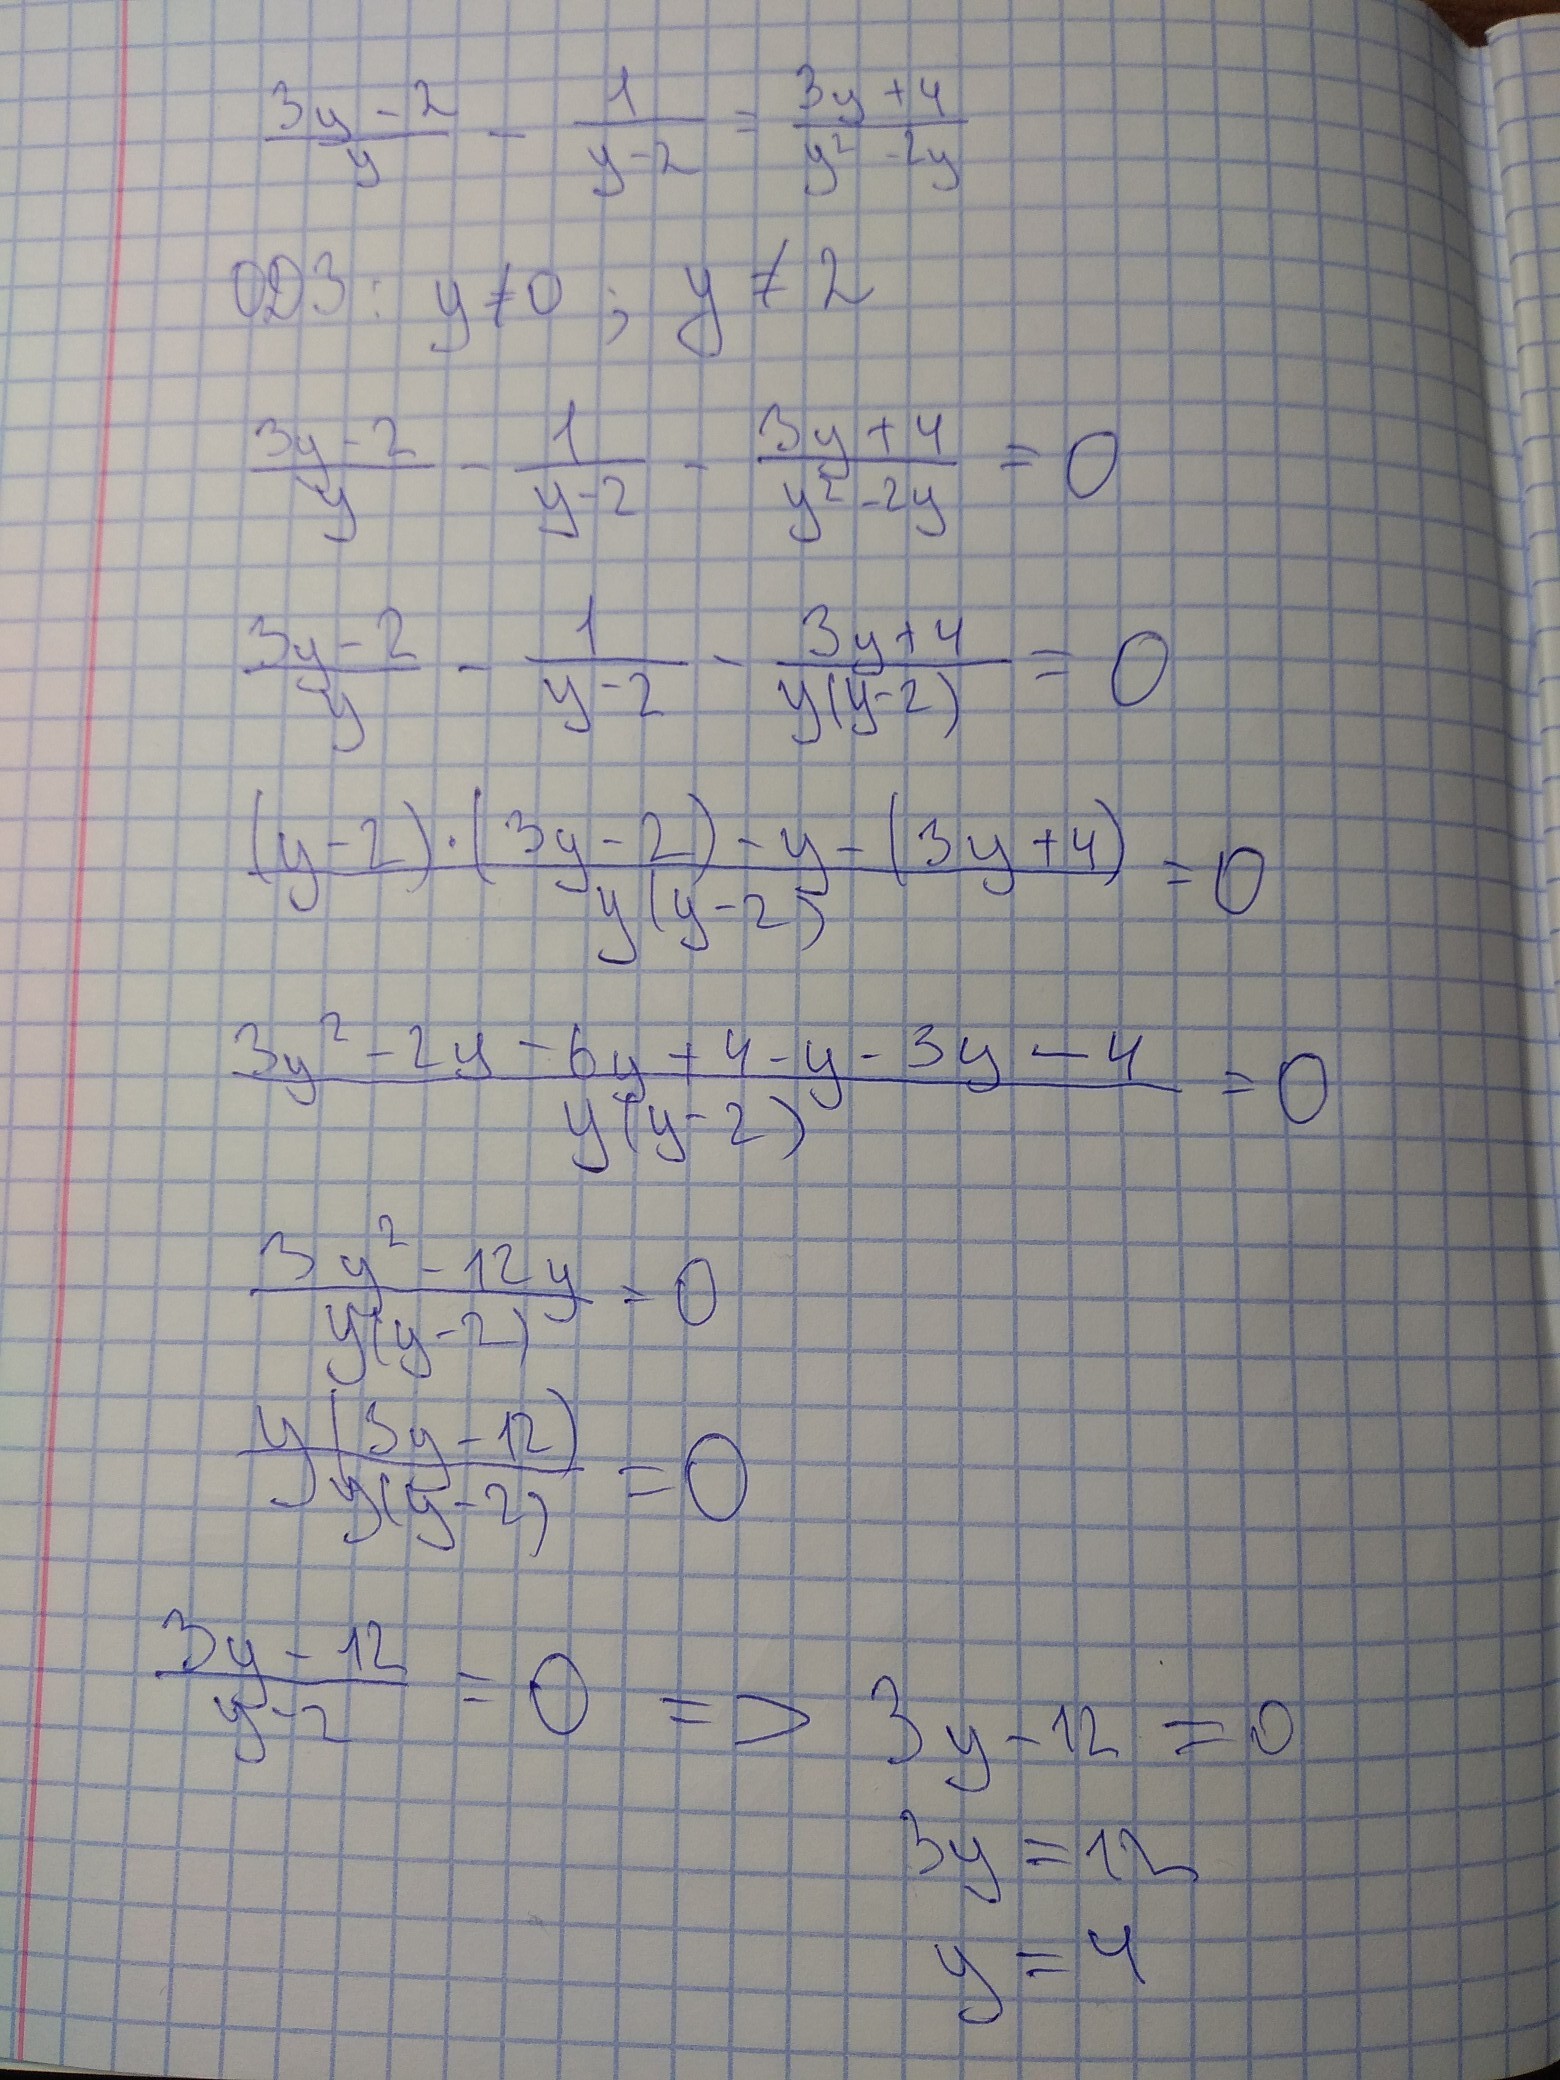 (3y-2)/y - 1/(y-2) = (3y+4)/(y²-2y)
ОДЗ: y≠0 ; y≠2
(3y-2)/y - 1/(y-2) - (3y+4)/(y²-2y) = 0
(3y-2)/y - 1/(y-2) - (3y+4)/(y(y-2)) = 0
((y-2)·(3y-2)-y-(3y+4))/(y(y-2)) = 0
(3y²-2y-6y+4-y-3y-4)/(y(y-2)) = 0
(3y²-12y)/(y(y-2)) = 0
(y(3y-12))/(y(y-2)) = 0
(3y-12)/(y-2) = 0 => 3y-12 = 0
3y = 12
y = 4